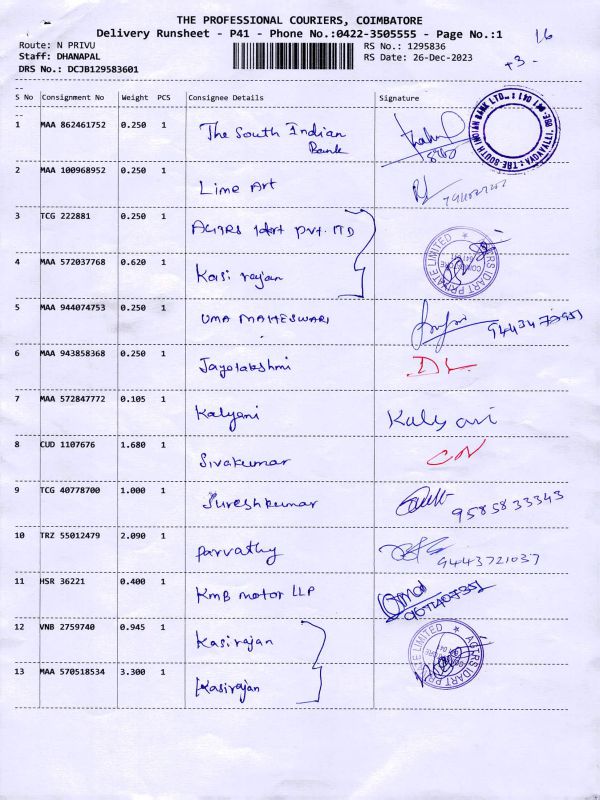 THE PROFESSIONAL COURIERS, COIMBATORE
Delivery Runsheet - P41 - Phone No.:0422-3505555 - Page No.:1
16
Route: N PRIVU
RS No.: 1295836
Staff: DHANAPAL
RS Date: 26-Dec-2023
+3-
DRS No.: DCJB129583601
S No Consignment No Weight PCS Consignee Details Signature
1 MAA 862461752 0.250 1 The South Indian Bank
2 MAA 100968952 0.250 1 Lime Art
3 TCG 222881 0.250 1 AGTRS Idart pvt. lTD
4 MAA 572037768 0.620 1 Kasi rajan
5 MAA 944074753 0.250 1 UMA MAHESWARI
6 MAA 943858368 0.250 1 Jayalakshmi DL
7 MAA 572847772 0.105 1 Kalyani Kalyani
8 CUD 1107676 1.680 1 Sivakumar CN
9 TCG 40778700 1.000 1 Sureshkumar 9585833343
10 TRZ 55012479 2.090 1 parvathy 9443721037
11 HSR 36221 0.400 1 KMB motor LLP
12 VNB 2759740 0.945 1 Kasirajan
13 MAA 570518534 3.300 1 Kasirajan
THE SOUTH INDIAN BANK LTD.
AGTRS IDART PRIVATE LIMITED
AGTRS IDART PRIVATE LIMITED